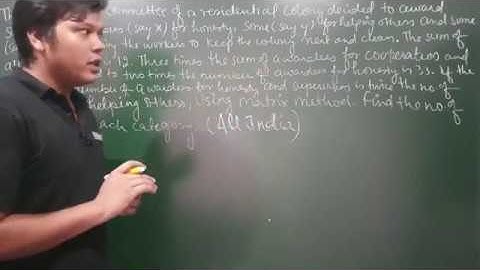 committee of a residential colony decided to award
(say x) for honesty, some (say y) for helping others and some
the workers to keep the colony neat and clean. The sum of
12. Three times the sum of awardees for cooperation and
two times the number of awardees for honesty is 33. If the
number of awardees for honesty and supervision is twice the no. of
helping others, using matrix method. Find the no. of
each category. (All India)